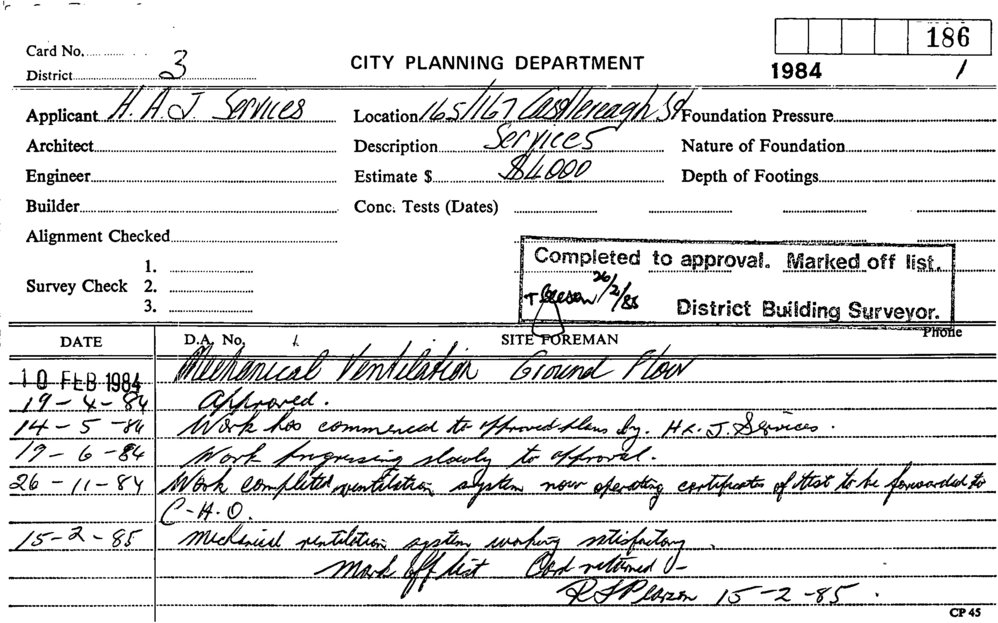 186
1984 1
Card No.
District 3
CITY PLANNING DEPARTMENT
Applicant H. A. J. Services
Location 165/167 Castlereagh St
Foundation Pressure
Architect
Description Services
Nature of Foundation
Engineer
Estimate $ $4000
Depth of Footings
Builder
Conc. Tests (Dates)
Alignment Checked
Survey Check 1.
2.
3.
Completed to approval. Marked off list.
26/2/85
District Building Surveyor.
DATE D.A. No. 1. SITE FOREMAN Phone
10 FEB 1984 Mechanical Ventilation Ground Floor
19-4-84 Approved.
14-5-84 Work has commenced to approved plans by. H & J. Services.
19-6-84 Work progressing slowly to approval.
26-11-84 Work completed ventilation system now operating certificates of test to be forwarded to
C-H.O.
15-2-85 Mechanical ventilation system working satisfactory.
Mark off list Card returned
15-2-85.
CP 45